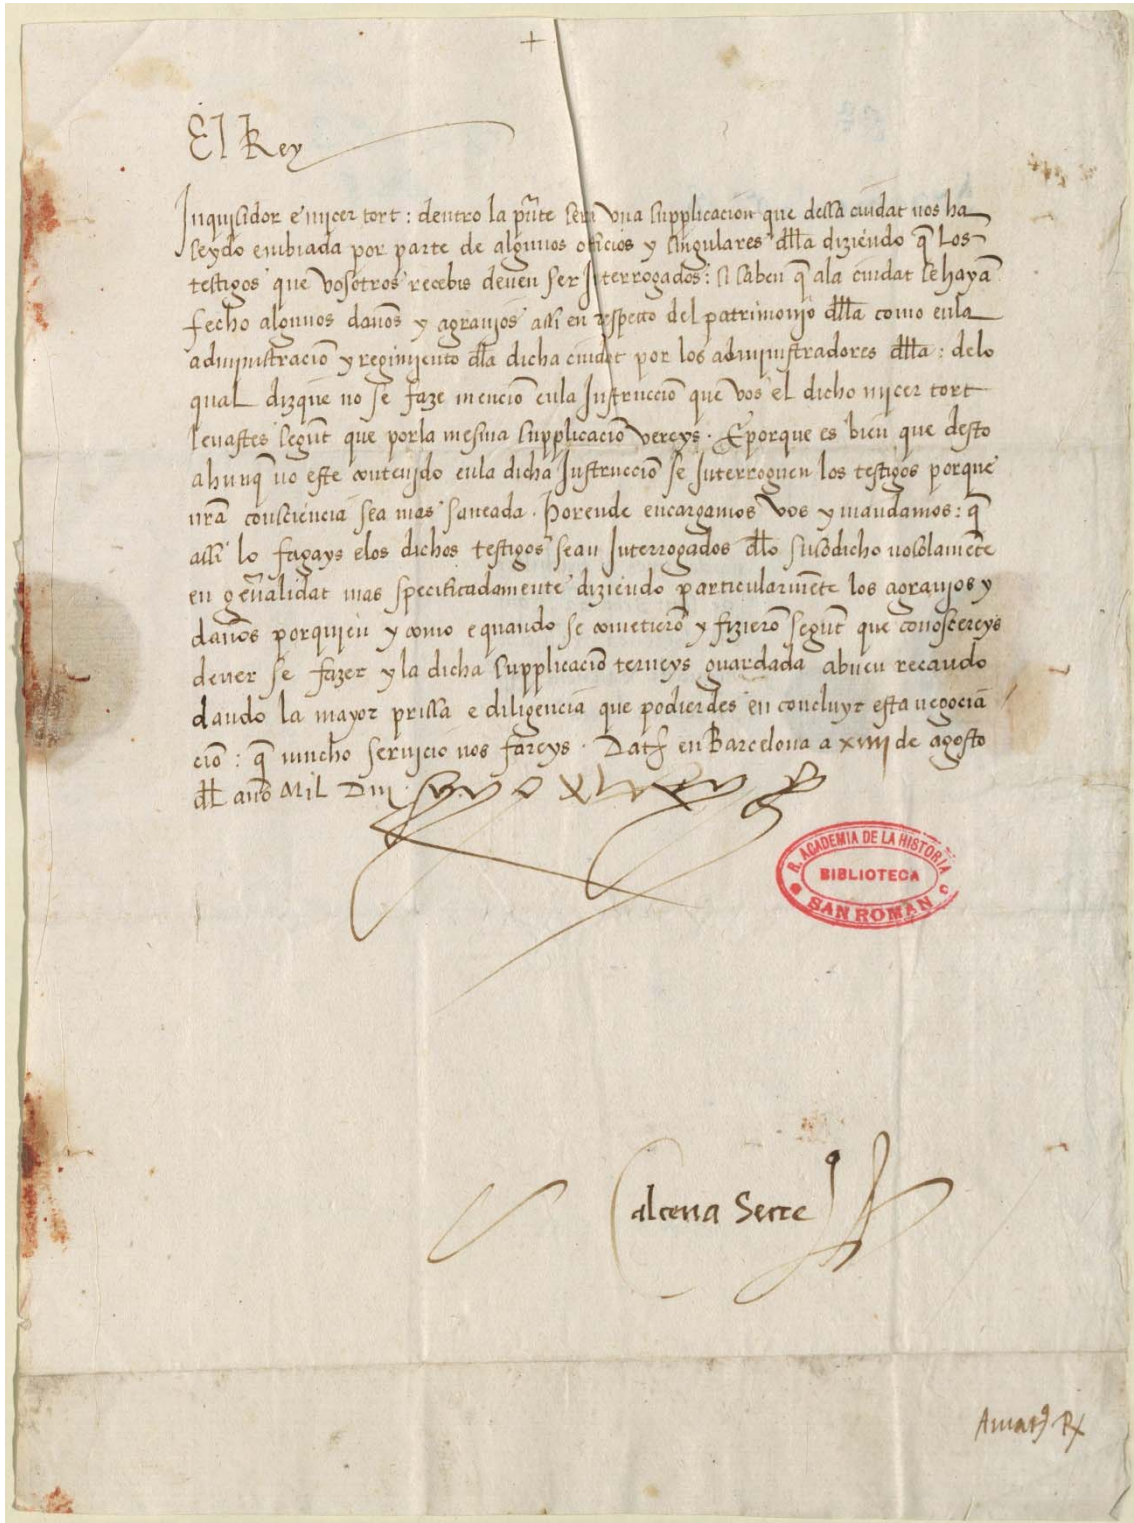 +
El Rey
Inquisidor e micer tort : dentro la pñte sera una supplicacion que dessa ciudat nos ha
seydo embiada por parte de algunos officios y singulares dlla diziendo q̃ los
testigos que vosotros recebis deven ser Interrogados : si saben q̃ ala ciudat se hayã
fecho algunos daños y agravios assi en respecto del patrimonio dlla como enla
administraciõ y regimiento dla dicha ciudat por los administradores dlla : delo
qual dizque no se faze menciõ enla Instrucciõ que vos el dicho micer tort
levastes segũt que porla mesma supplicaciõ vereys . E porque es bien que desto
ahunq̃ no este contenido enla dicha Instrucciõ se Interroguen los testigos porque
nrã consciencia sea mas saneada . Porende encargamos vos y mandamos : q̃
assi lo fagays e los dichos testigos sean Interrogados dlo susodicho nosolamẽte
en gẽnalidat mas specificadamente diziendo particularmẽte los agravios y
daños porquien y como e quando se cometierõ y fizierõ segũt que conoscereys
dever se fazer y la dicha supplicaciõ terneys guardada abuen recaudo
dando la mayor prissa e diligencia que podierdes en concluyr esta negocia
ciõ : q̃ mucho servicio nos fareys . Dat en Barcelona a xiiii de agosto
dl año Mil Diii
R. ACADEMIA DE LA HISTORIA
BIBLIOTECA
SAN ROMAN
Calcena Secre